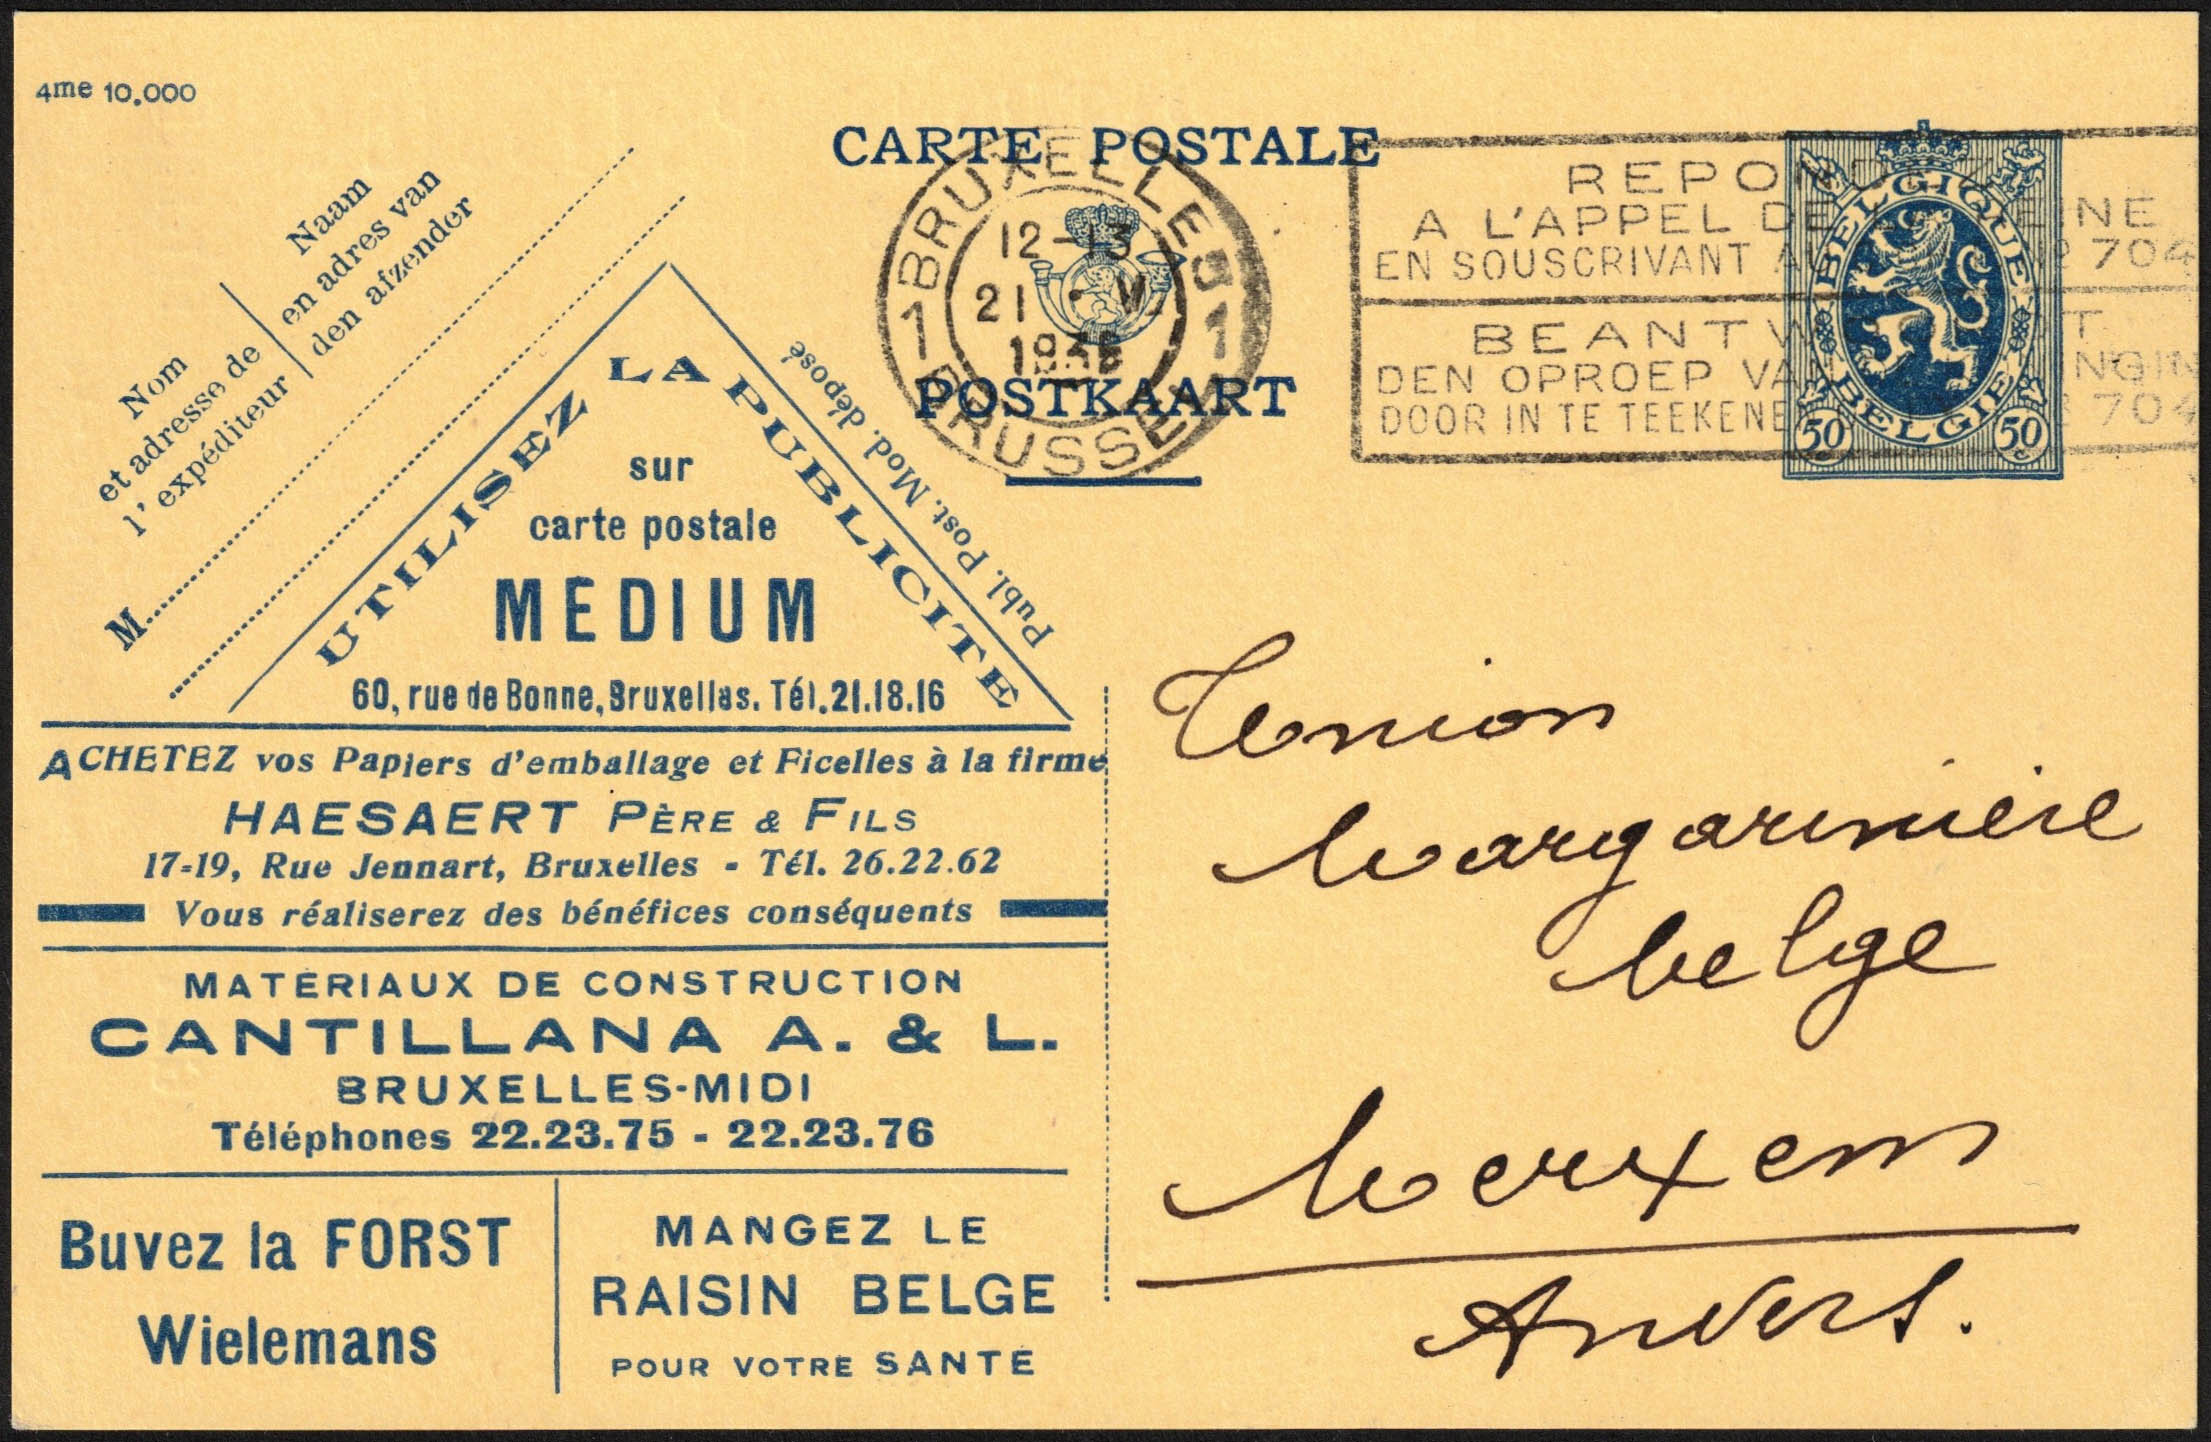 4me 10.000
CARTE POSTALE
POSTKAART
BRUXELLES
1 1
12-13
21
BRUSSEL
REPONDEZ
A L'APPEL DE LA REINE
EN SOUSCRIVANT 704
BEANTWOORDT
DEN OPROEP VAN KONINGIN
DOOR IN TE TEEKENEN 704
BELGIQUE
BELGIE
50c 50c
Naam
en adres van
den afzender
Nom
et adresse de
l'expéditeur
M.
UTILISEZ LA PUBLICITE
sur
carte postale
MEDIUM
60, rue de Bonne, Bruxelles. Tél. 21.18.16
Publ. Post. Mod. déposé
ACHETEZ vos Papiers d'emballage et Ficelles à la firme
HAESAERT PÈRE & FILS
17=19, Rue Jennart, Bruxelles - Tél. 26.22.62
Vous réaliserez des bénéfices conséquents
MATÉRIAUX DE CONSTRUCTION
CANTILLANA A. & L.
BRUXELLES-MIDI
Téléphones 22.23.75 - 22.23.76
Buvez la FORST
Wielemans
MANGEZ LE
RAISIN BELGE
POUR VOTRE SANTÉ
Union
Margarinière
belge
Merxem
Anvers.